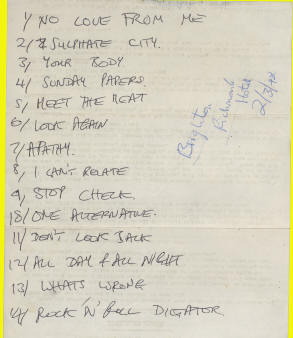 1/ NO LOVE FROM ME
2/ SULPHATE CITY.
3, YOUR BODY
4/ SUNDAY PAPERS.
5, MEET THE MEAT
6/ LOOK AGAIN
7/ APATHY.
8, I CAN'T RELATE
9, STOP CHECK.
10/ ONE ALTERNATIVE.
11/ DON'T LOOK BACK
12/ ALL DAY & ALL NIGHT
13/ WHATS WRONG
14/ ROCK 'N' ROLL DICTATOR
Brighton
Richmond
Hotel
2/3/78